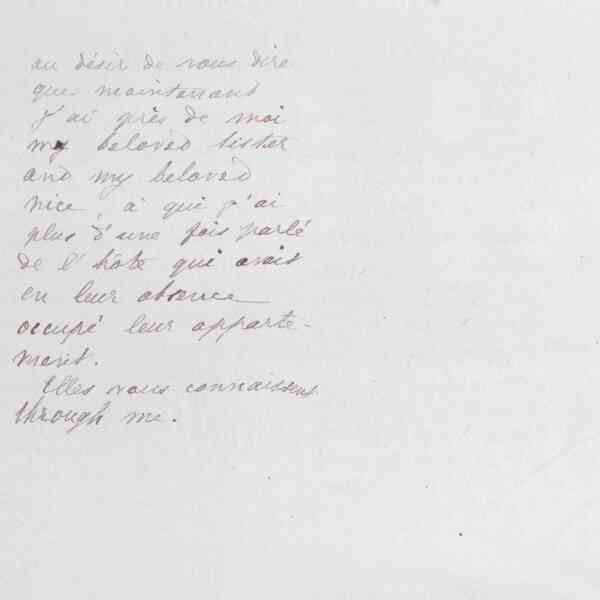 au désir de vous dire
que maintenant
j'ai près de moi
my beloved sister
and my beloved
nice, à qui j'ai
plus d'une fois parlé
de l'hôte qui avait
en leur absence
occupé leur apparte-
ment.
Elles vous connaissent
through me.